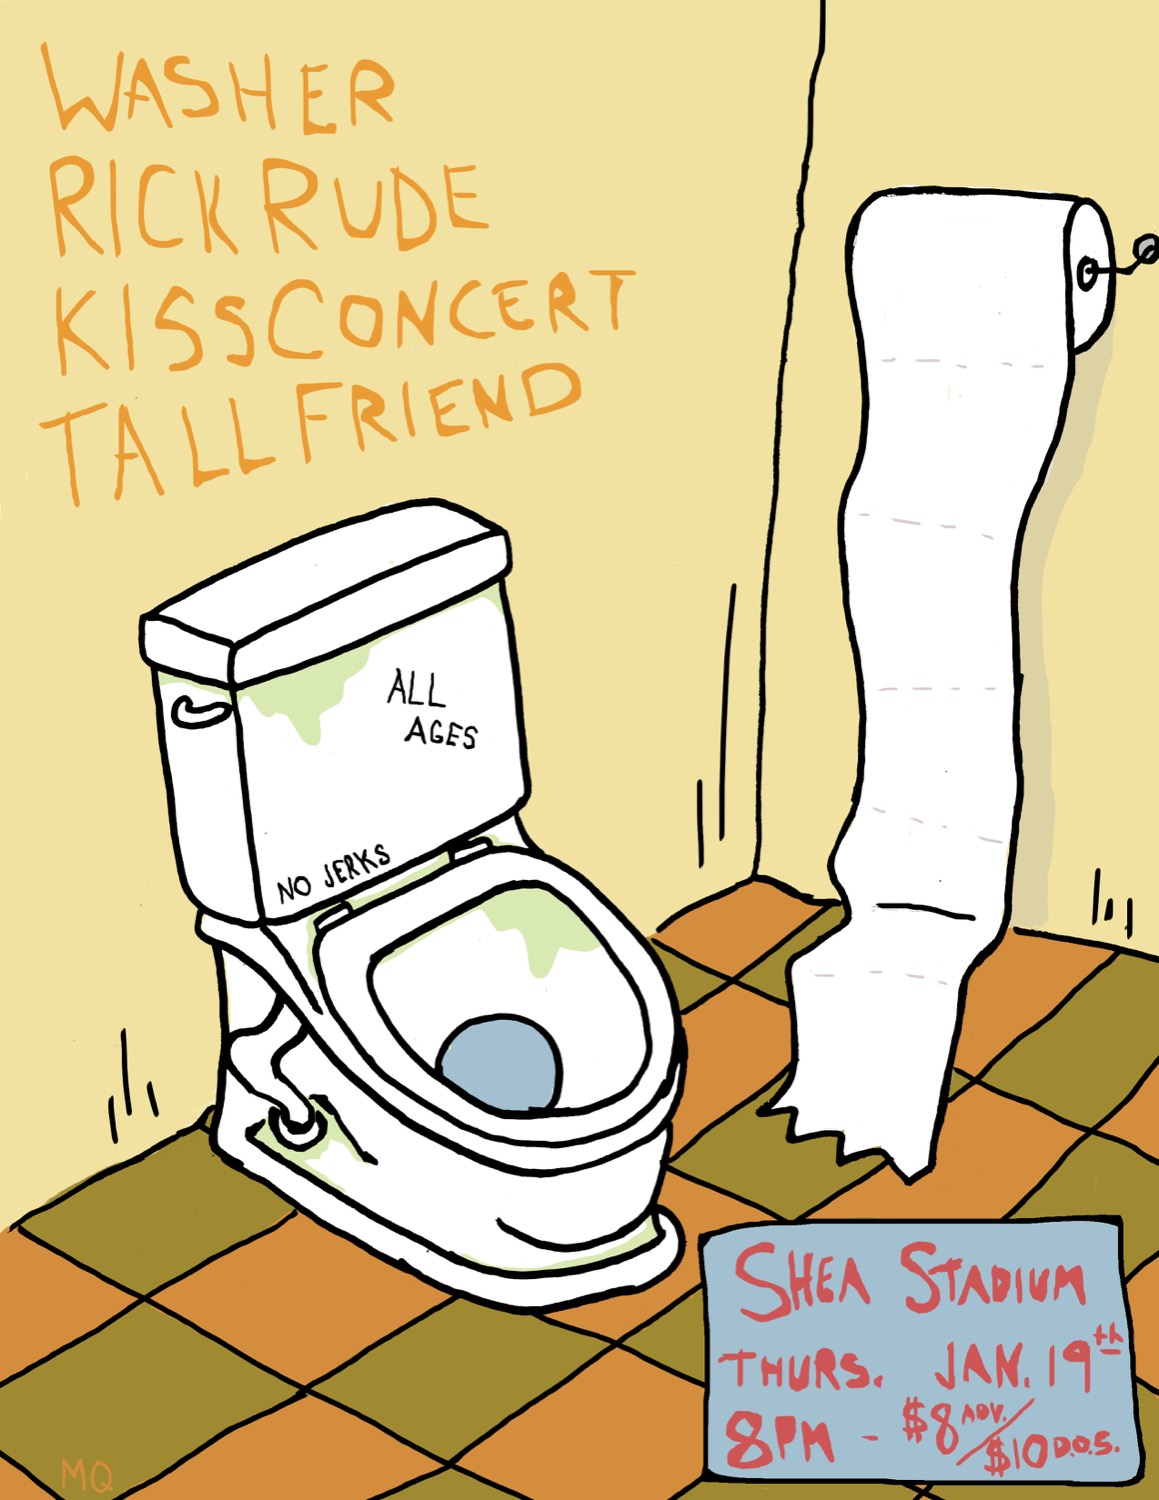 WASHER
RICK RUDE
KISS CONCERT
TALL FRIEND
ALL
AGES
NO JERKS
SHEA STADIUM
THURS. JAN. 19th
8PM - $8 ADV./$10 D.O.S.
MQ